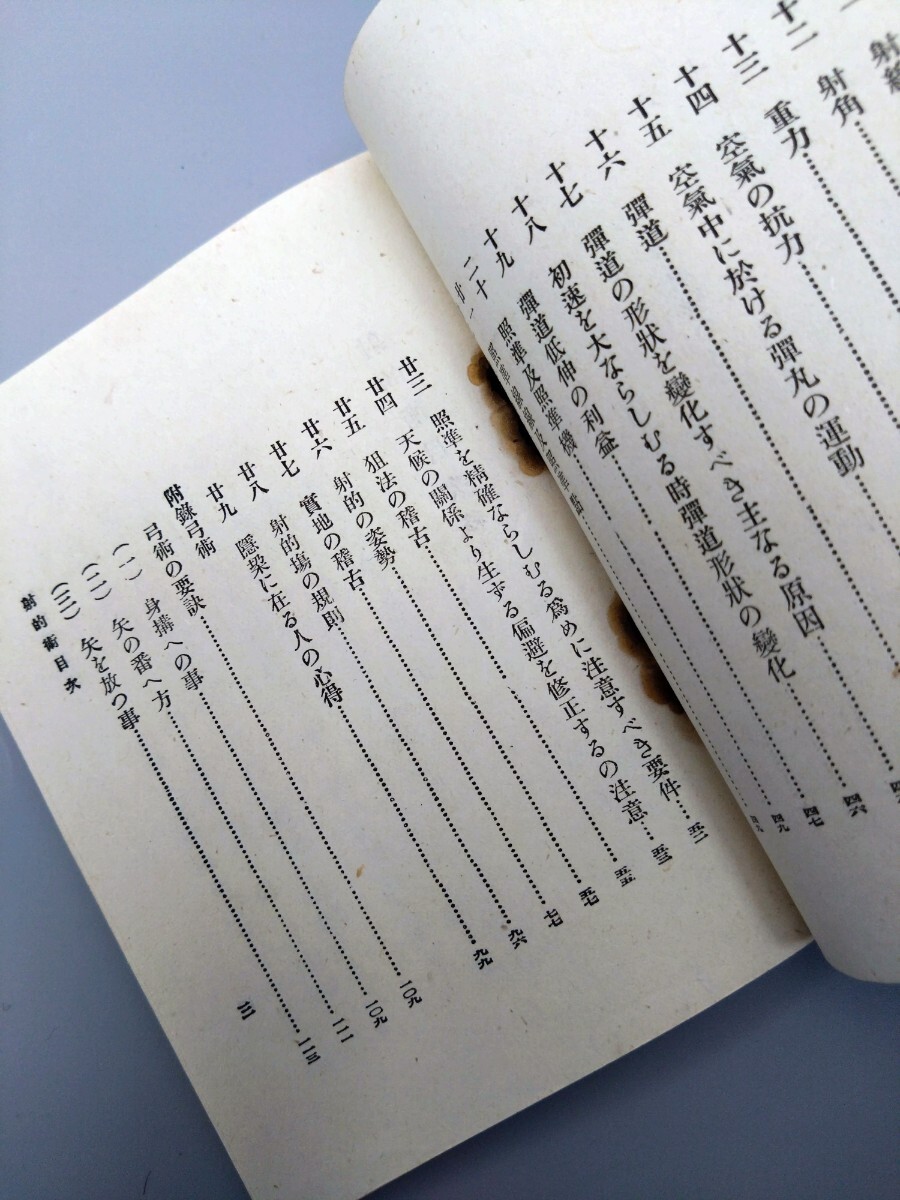 射
十二 射角
十三 重力
十四 空氣の抗力
十五 空氣中に於ける彈丸の運動
十六 彈道
十七 彈道の形狀を變化すべき主なる原因
十八 初速を大ならしむる時彈道形狀の變化 四六
十九 彈道低伸の利益 四七
二十 照準及照準機 四九
廿一 四九
廿三 照準を精確ならしむる爲めに注意すべき要件 五二
廿四 天候の關係より生ずる偏避を修正するの注意 五三
廿五 狙法の稽古 五五
廿六 射的の姿勢 五七
廿七 實地の稽古 七七
廿八 射的塲の規則 九六
廿九 隱塹に在る人の心得 九九
附錄弓術
弓術の要訣 一〇九
(一) 身構への事 一〇九
(二) 矢の番へ方 一一一
(三) 矢を放つ事 一一三
射的術目次 三